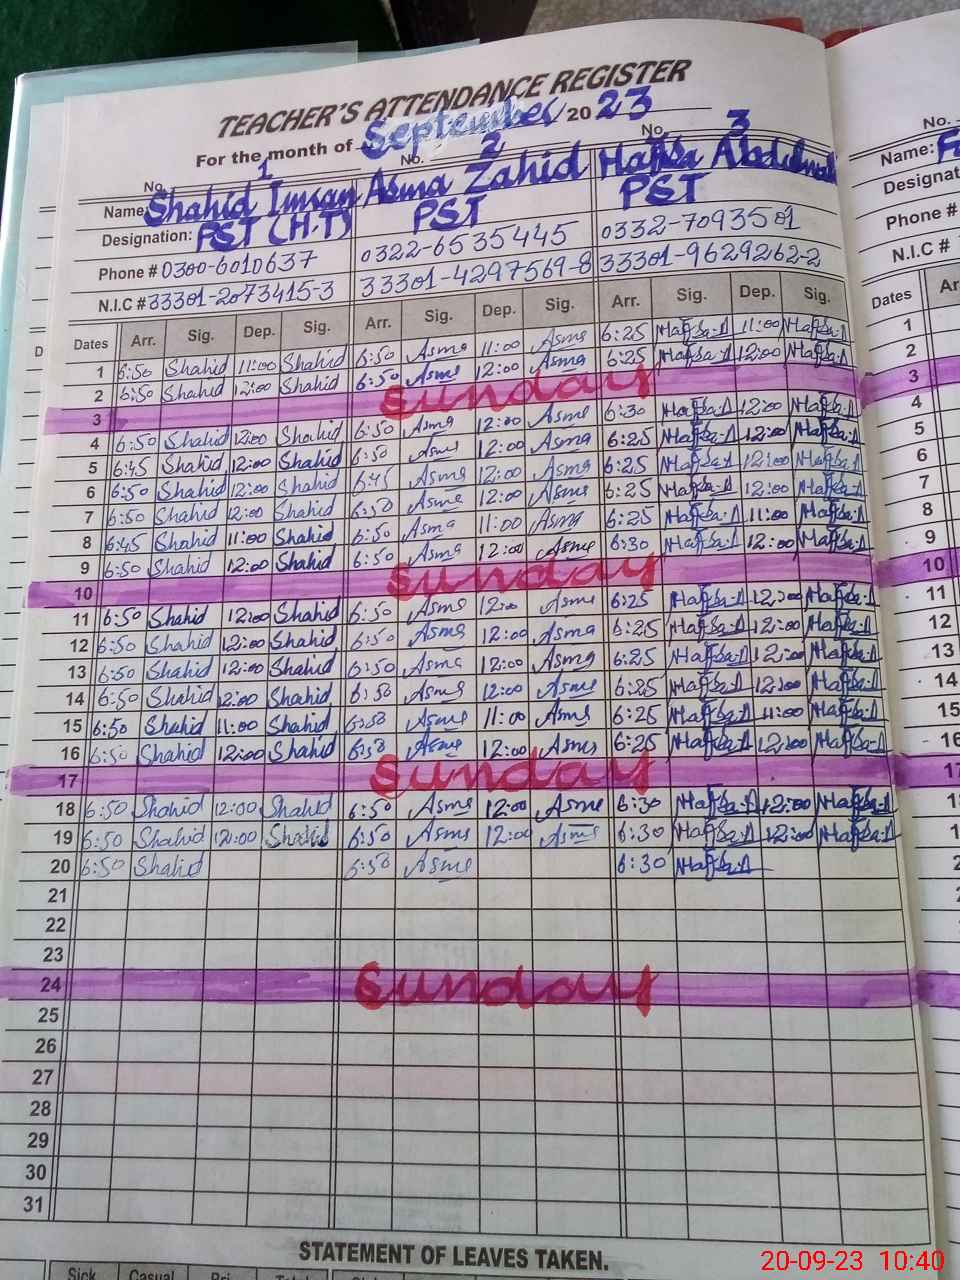 TEACHER'S ATTENDANCE REGISTER
For the month of September 2023
No. 1 No. 2 No. 3 No.
Name: Shahid Imran Asma Zahid Hafsa Name:
Designation: PST (H.T) PST PST
Phone # 0300-6010637 0322-6535445 0332-7093501 Phone #
N.I.C # 33301-2073415-3 33301-4297569-8 33301-9629262-2 N.I.C #
Dates Arr. Sig. Dep. Sig. Arr. Sig. Dep. Sig. Arr. Sig. Dep. Sig. Dates
1 6:50 Shahid 11:00 Shahid 6:50 Asma 11:00 Asma 6:25 Hafsa.A 11:00 Hafsa.A 1
2 6:50 Shahid 12:00 Shahid 6:50 Asma 12:00 Asma 6:25 Hafsa.A 12:00 Hafsa.A 2
3 Sunday 3
4 6:50 Shahid 12:00 Shahid 6:50 Asma 12:00 Asma 6:30 Hafsa.A 12:00 Hafsa.A 4
5 6:45 Shahid 12:00 Shahid 6:50 Asma 12:00 Asma 6:25 Hafsa.A 12:00 Hafsa.A 5
6 6:50 Shahid 12:00 Shahid 6:45 Asma 12:00 Asma 6:25 Hafsa.A 12:00 Hafsa.A 6
7 6:50 Shahid 12:00 Shahid 6:50 Asma 12:00 Asma 6:25 Hafsa.A 12:00 Hafsa.A 7
8 6:45 Shahid 11:00 Shahid 6:50 Asma 11:00 Asma 6:25 Hafsa.A 11:00 Hafsa.A 8
9 6:50 Shahid 12:00 Shahid 6:50 Asma 12:00 Asma 6:30 Hafsa.A 12:00 Hafsa.A 9
10 Sunday 10
11 6:50 Shahid 12:00 Shahid 6:50 Asma 12:00 Asma 6:25 Hafsa.A 12:00 Hafsa.A 11
12 6:50 Shahid 12:00 Shahid 6:50 Asma 12:00 Asma 6:25 Hafsa.A 12:00 Hafsa.A 12
13 6:50 Shahid 12:00 Shahid 6:50 Asma 12:00 Asma 6:25 Hafsa.A 12:00 Hafsa.A 13
14 6:50 Shahid 12:00 Shahid 6:50 Asma 12:00 Asma 6:25 Hafsa.A 12:00 Hafsa.A 14
15 6:50 Shahid 11:00 Shahid 6:50 Asma 11:00 Asma 6:25 Hafsa.A 11:00 Hafsa.A 15
16 6:50 Shahid 12:00 Shahid 6:50 Asma 12:00 Asma 6:25 Hafsa.A 12:00 Hafsa.A 16
17 Sunday 17
18 6:50 Shahid 12:00 Shahid 6:50 Asma 12:00 Asma 6:30 Hafsa.A 12:00 Hafsa.A
19 6:50 Shahid 12:00 Shahid 6:50 Asma 12:00 Asma 6:30 Hafsa.A 12:00 Hafsa.A
20 6:50 Shahid 6:50 Asma 6:30 Hafsa.A
21
22
23
24 Sunday
25
26
27
28
29
30
31
STATEMENT OF LEAVES TAKEN.
Sick Casual
20-09-23 10:40